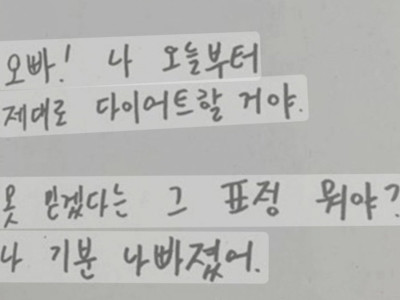 오빠! 나 오늘부터
제대로 다이어트할 거야.
못 믿겠다는 그 표정 뭐야?
나 기분 나빠졌어.